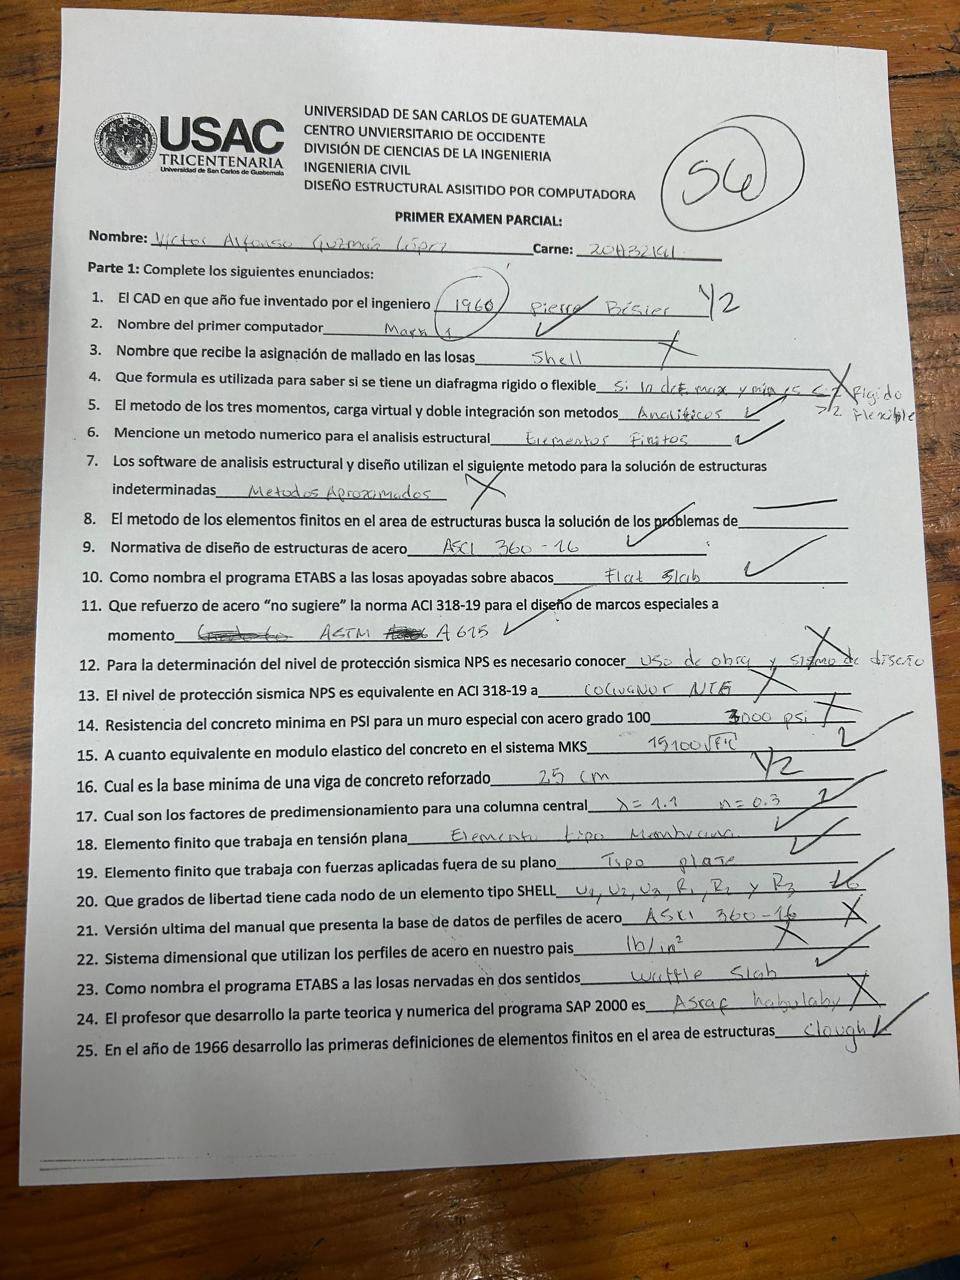 USAC
TRICENTENARIA
Universidad de San Carlos de Guatemala
UNIVERSIDAD DE SAN CARLOS DE GUATEMALA
CENTRO UNVIERSITARIO DE OCCIDENTE
DIVISIÓN DE CIENCIAS DE LA INGENIERIA
INGENIERIA CIVIL
DISEÑO ESTRUCTURAL ASISITIDO POR COMPUTADORA
PRIMER EXAMEN PARCIAL:
Nombre: Victor Alfonso Guzmán López Carne:
Parte 1: Complete los siguientes enunciados:
1. El CAD en que año fue inventado por el ingeniero 1960 Pierre Bésier 1/2
2. Nombre del primer computador Mark 1
3. Nombre que recibe la asignación de mallado en las losas Shell
4. Que formula es utilizada para saber si se tiene un diafragma rigido o flexible si la def max y min es <2 Rigido
>2 Flexible
5. El metodo de los tres momentos, carga virtual y doble integración son metodos Analiticos
6. Mencione un metodo numerico para el analisis estructural Elementos Finitos
7. Los software de analisis estructural y diseño utilizan el siguiente metodo para la solución de estructuras
indeterminadas Metodos Aproximados
8. El metodo de los elementos finitos en el area de estructuras busca la solución de los problemas de
9. Normativa de diseño de estructuras de acero ASCI 360-16
10. Como nombra el programa ETABS a las losas apoyadas sobre abacos Flat Slab
11. Que refuerzo de acero "no sugiere" la norma ACI 318-19 para el diseño de marcos especiales a
momento ASTM A615
12. Para la determinación del nivel de protección sismica NPS es necesario conocer uso de obra y sismo de diseño
13. El nivel de protección sismica NPS es equivalente en ACI 318-19 a COGUANOR NTG
14. Resistencia del concreto minima en PSI para un muro especial con acero grado 100 3000 psi
15. A cuanto equivalente en modulo elastico del concreto en el sistema MKS 15100√f'c
16. Cual es la base minima de una viga de concreto reforzado 25 cm 1/2
17. Cual son los factores de predimensionamiento para una columna central λ=1.1 n=0.3
18. Elemento finito que trabaja en tensión plana Elemento tipo Membrana
19. Elemento finito que trabaja con fuerzas aplicadas fuera de su plano Tipo plate
20. Que grados de libertad tiene cada nodo de un elemento tipo SHELL U1, U2, U3, R1, R2 y R3
21. Versión ultima del manual que presenta la base de datos de perfiles de acero ASCI 360-16
22. Sistema dimensional que utilizan los perfiles de acero en nuestro pais lb/in²
23. Como nombra el programa ETABS a las losas nervadas en dos sentidos Waffle Slab
24. El profesor que desarrollo la parte teorica y numerica del programa SAP 2000 es Asraf habulaby
25. En el año de 1966 desarrollo las primeras definiciones de elementos finitos en el area de estructuras Clough